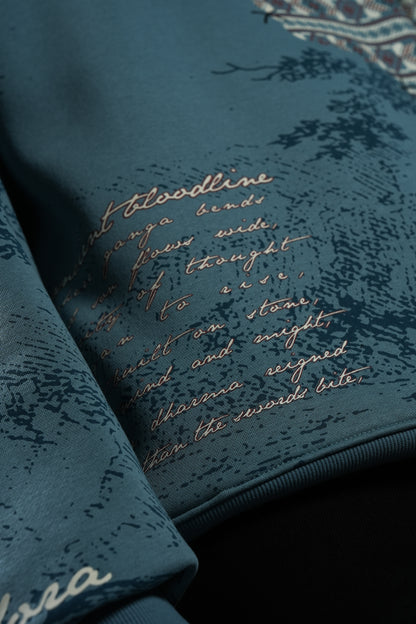 bloodline
ganga bends
flows wide,
of thought
to rise,
built on stone,
and might,
dharma reigned
than the swords bite,